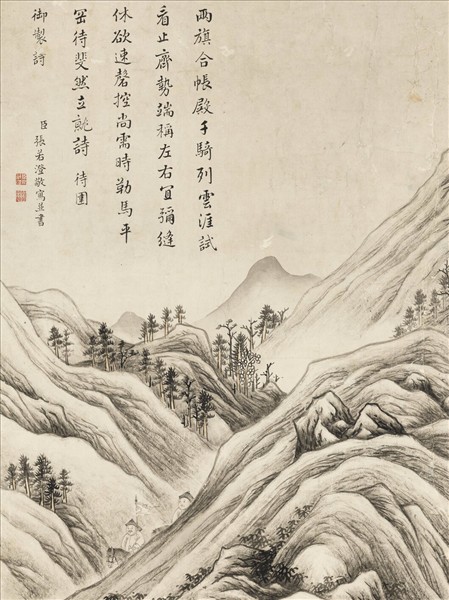 兩旗合帳殿千騎列雲涯試
看止齊勢端稱左右冝彌縫
休欲速磬控尚需時勒馬平
岡待斐然立就詩 待圍
御製詩
臣張若澄敬寫并書